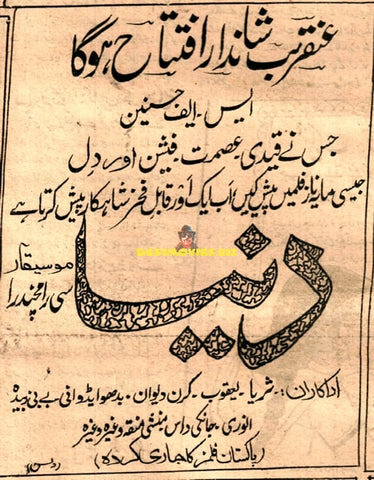 عنقریب شاندار افتتاح ہوگا
ایس۔ ایف حسنین
جس نے قیدی۔ عصمت۔ فیشن اور دل
جیسی مایہ ناز فلمیں پیش کیں اب ایک اور قابل فخر شاہکار پیش کرتا ہے
دنیا
موسیقار
سی رامچندرا
اداکاران:۔ ثریا۔ یعقوب۔ کرن دیوان۔ بدھو ایڈوانی بے بی زبیدہ
انوری۔ جانکی داس۔ منقہ وغیرہ وغیرہ
(پاکستان فلمز کا جاری کردہ)